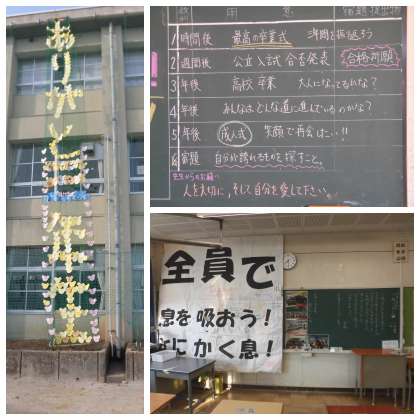 ありがとう
用意 宿題・提出物
1 時間後 最高の卒業式 3年間を振り返ろう
2 週間後 公立入試合否発表 合格祈願
3 年後 高校卒業 大人になってるかな?
4 年後 みんなはどんな道に進んでいるのかな?
5 年後 成人式 笑顔で再会
6 宿題 自分が誇れるものを探すこと。
先生からのお願い
人を大切に、そして自分を愛して下さい。
全員で
息を吸おう!
にかく息!